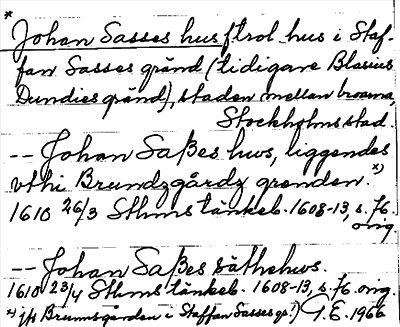 *
Johan Sasses hus ftrol. hus i Staf-
fan Sasses gränd (tidigare Blasius
Dundies gränd), staden mellan broarna,
Stockholms stad.
-- Johan Saßes hws, liggendes
vthi Brundzgårdz grenden. *)
1610 26/3 Sthms tänkeb. 1608-13, s. 76.
orig.
-- Johan Saßes säthehws.
1610 23/4 Sthms tänkeb. 1608-13, s. 76. orig.
*) jfr Brunnsgården i Staffan Sasses gr.) G.E. 1966